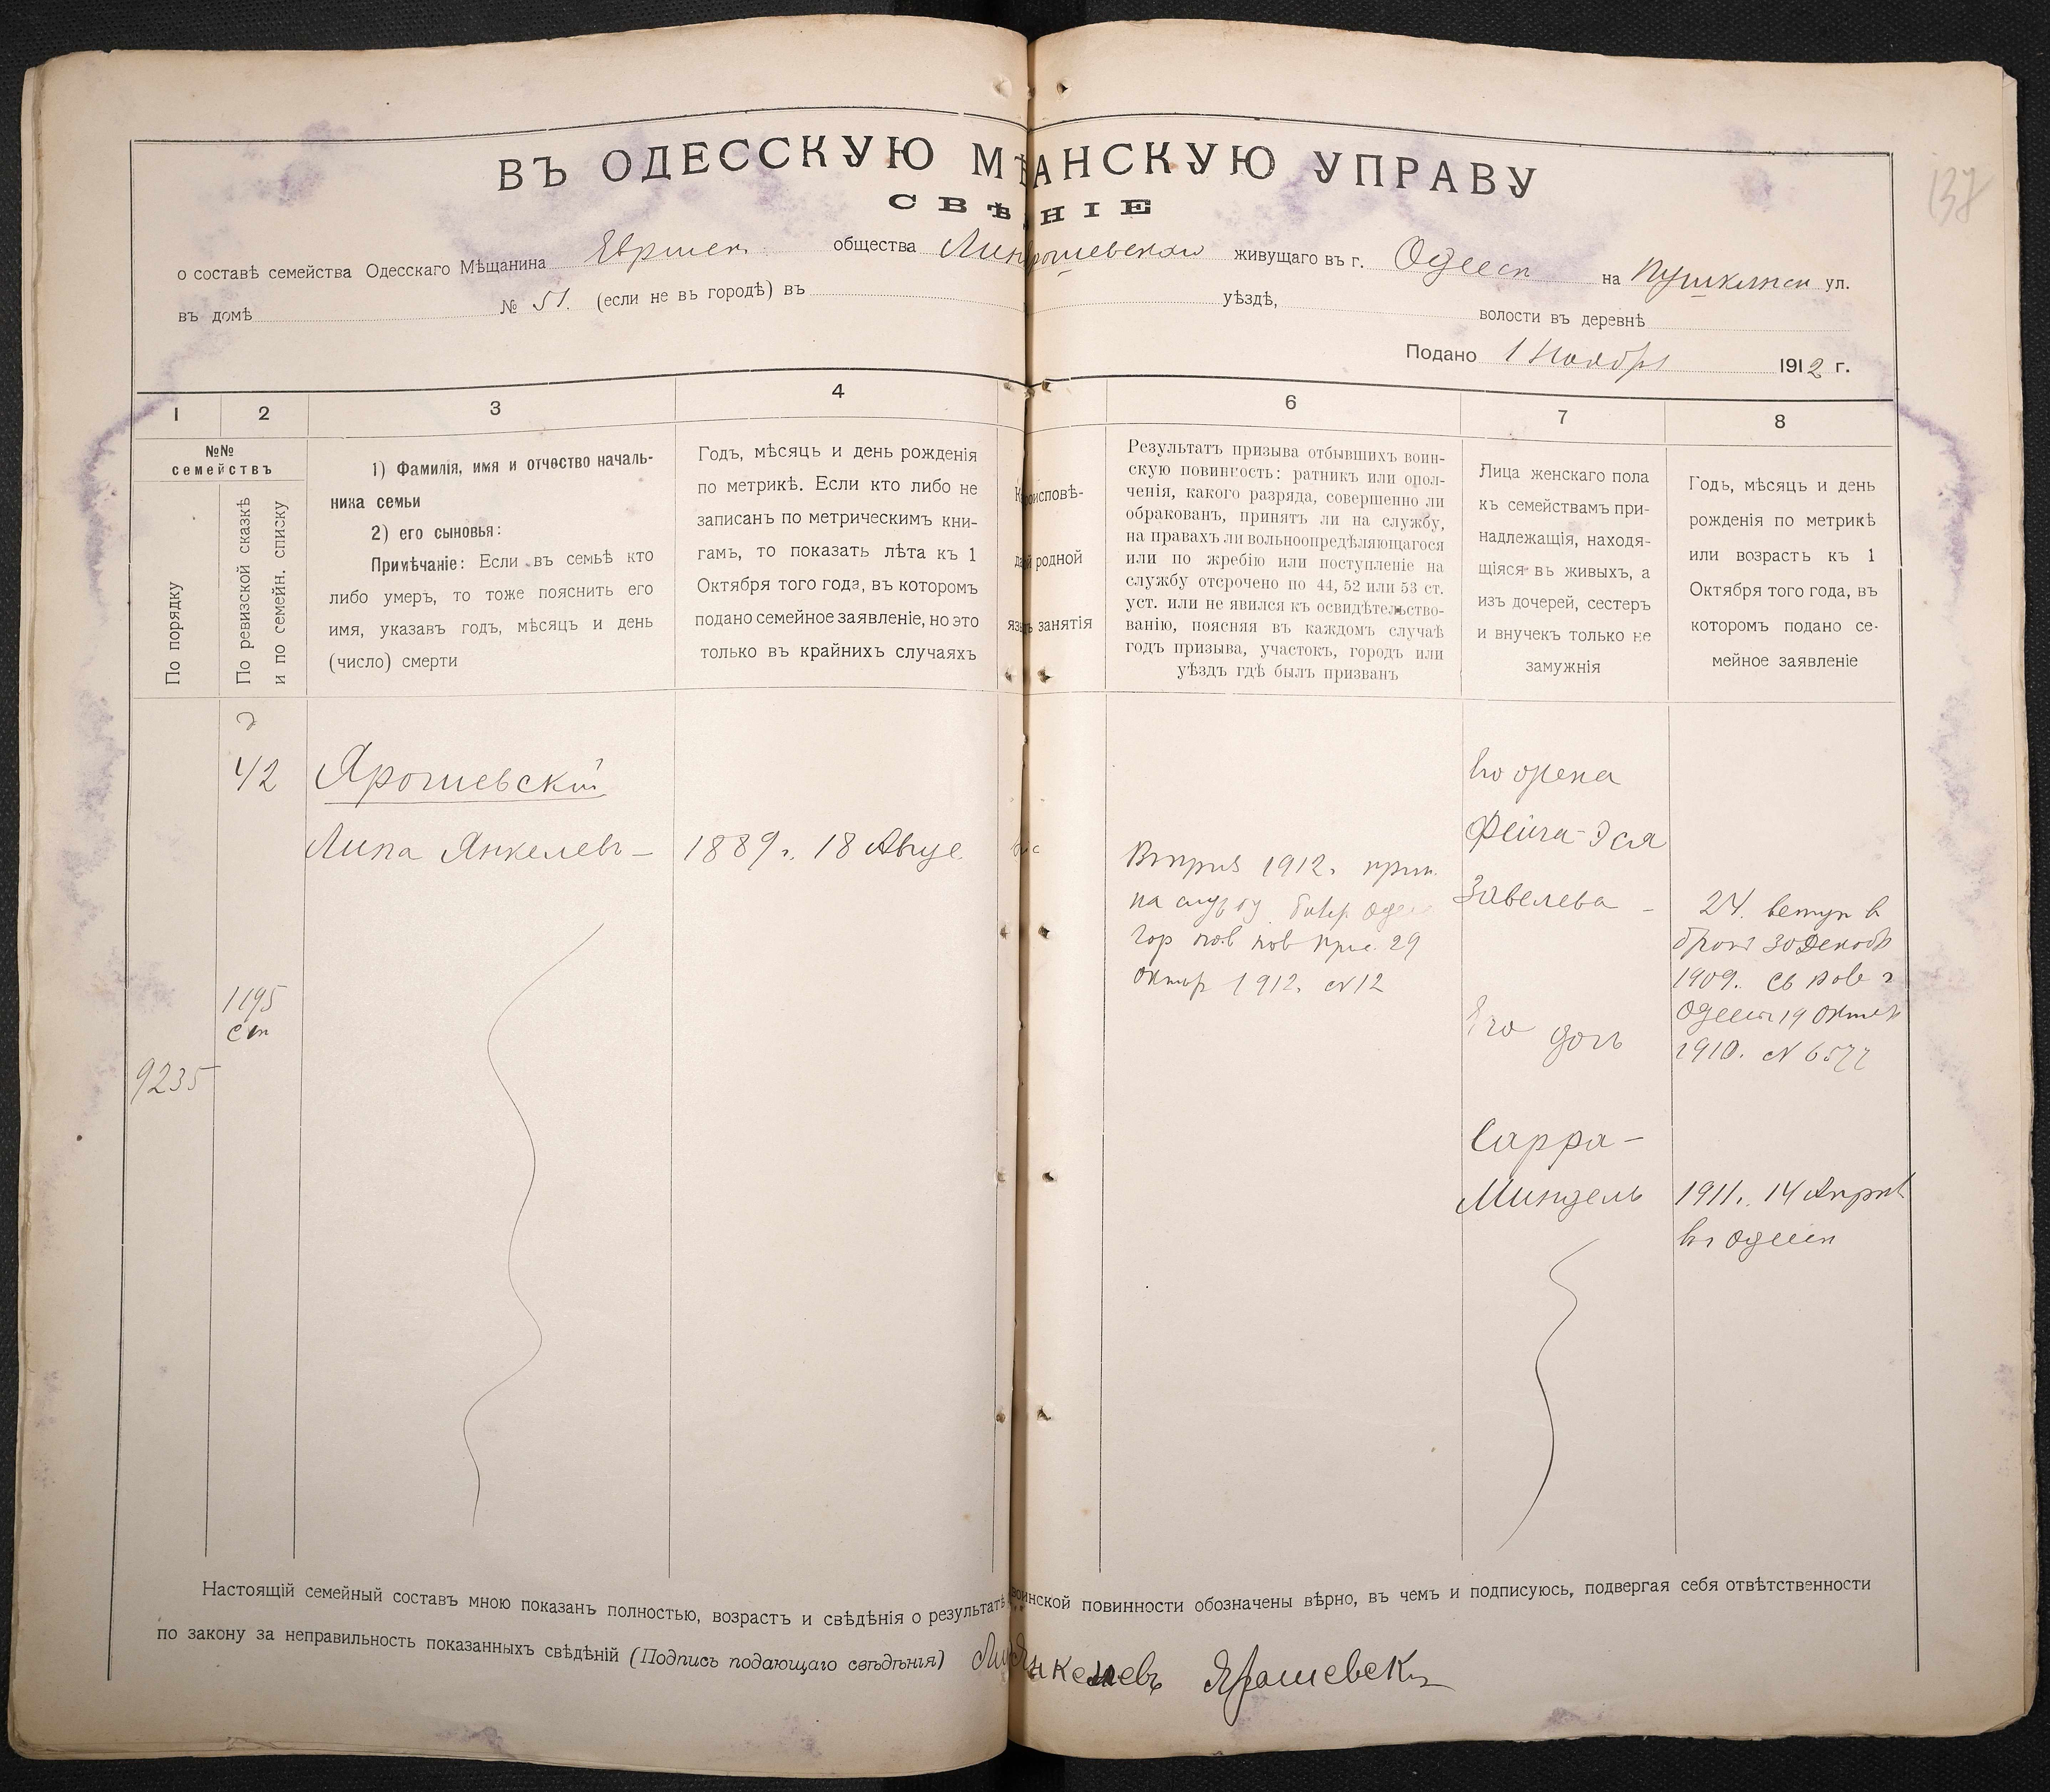 137
ВЪ ОДЕССКУЮ МѢ АНСКУЮ УПРАВУ
СВѢ НІЕ
о составѣ семейства Одесскаго Мѣщанина Еврейск. общества Лип Ярошевскаго живущаго въ г. Одессѣ на Пушкинск ул.
въ домѣ № 51. (если не въ городѣ) въ уѣздѣ, волости въ деревнѣ
Подано 1 Ноября 1912 г.
1 2 3 4 6 7 8
№№ семействъ
По порядку
По ревизской сказкѣ
и по семейн. списку
1) Фамилія, имя и отчество началь-
ника семьи
2) его сыновья:
Примѣчаніе: Если въ семьѣ кто
либо умеръ, то тоже пояснить его
имя, указавъ годъ, мѣсяцъ и день
(число) смерти
Годъ, мѣсяцъ и день рожденія
по метрикѣ. Если кто либо не
записанъ по метрическимъ кни-
гамъ, то показать лѣта къ 1
Октября того года, въ которомъ
подано семейное заявленіе, но это
только въ крайнихъ случаяхъ
оисповѣ-
й родной
яз ъ занятія
Результатъ призыва отбывшихъ воин-
скую повинность: ратникъ или опол-
ченія, какого разряда, совершенно ли
обракованъ, принятъ ли на службу,
на правахъ ли вольноопредѣляющагося
или по жребію или поступленіе на
службу отсрочено по 44, 52 или 53 ст.
уст. или не явился къ освидѣтельство-
ванію, поясняя въ каждомъ случаѣ
годъ призыва, участокъ, городъ или
уѣздъ гдѣ былъ призванъ
Лица женскаго пола
къ семействамъ при-
надлежащія, находя-
щіяся въ живыхъ, а
изъ дочерей, сестеръ
и внучекъ только не
замужнія
Годъ, мѣсяцъ и день
рожденія по метрикѣ
или возрастъ къ 1
Октября того года, въ
которомъ подано се-
мейное заявленіе
42
Ярошевскій
Липа Янкелевъ — 1889 г. 18 Авгус
1195
9235
1912 г. прин.
на службу Одес
гор пов 29
Октяр 1912. № 12
жена
Фейга-Эся
Завелева —
24. вступ в
бракъ 30 Декабр
1909. св
Одессы 19 Октяб
1910. № 6577
Его дочь
Сарра-
Миндель 1911. 14 Апрѣл
въ Одессѣ
Настоящій семейный составъ мною показанъ полностью, возрастъ и свѣдѣнія о результатѣ воинской повинности обозначены вѣрно, въ чемъ и подписуюсь, подвергая себя отвѣтственности
по закону за неправильность показанныхъ свѣдѣній (Подпись подающаго свѣдѣнія) Ли Янкелевъ Ярошевскі